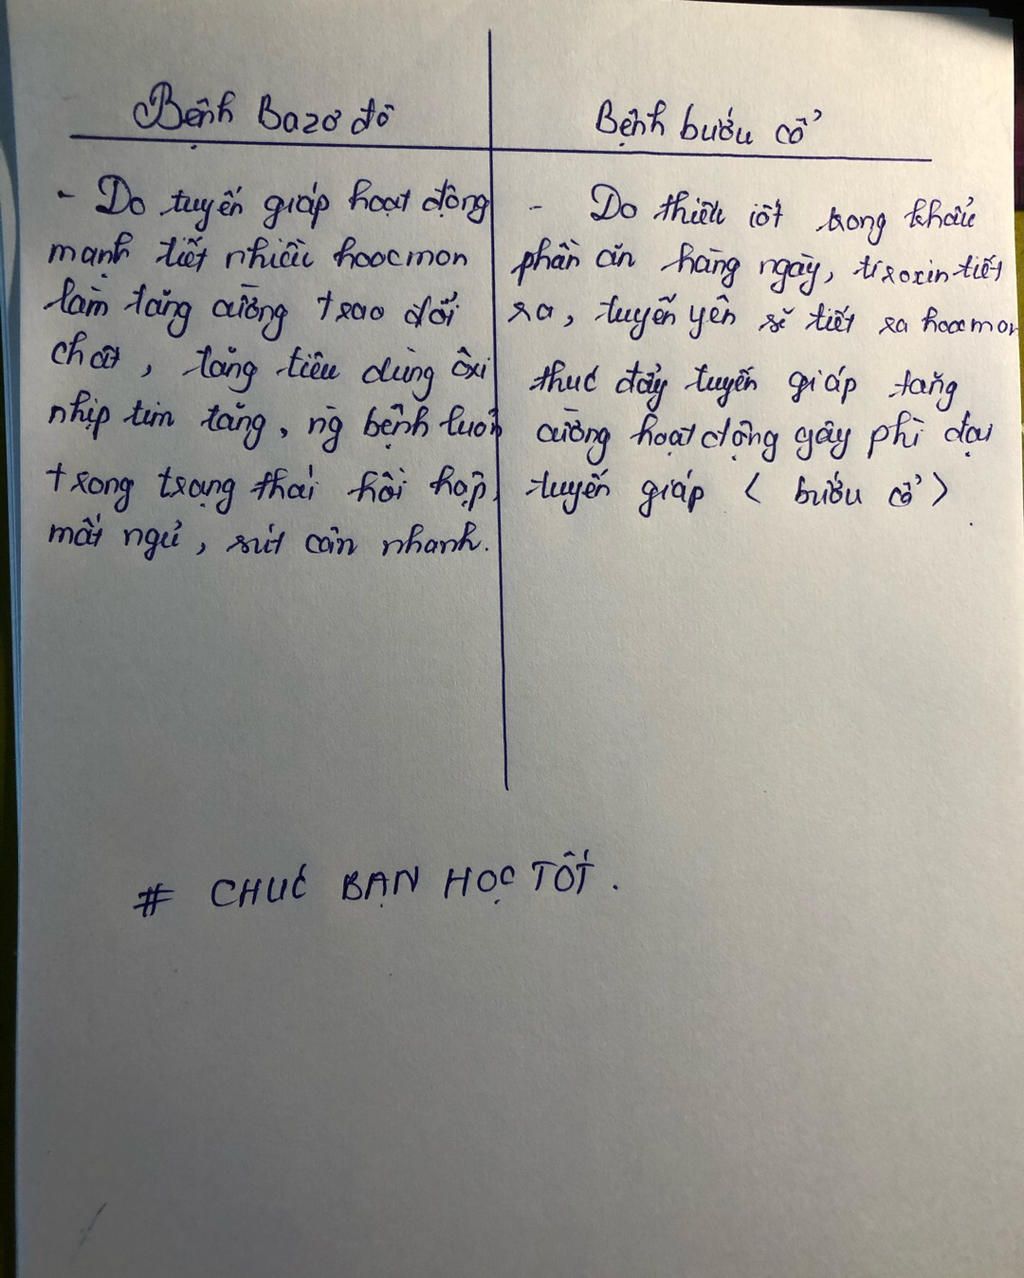 Bệnh Bazơ đô
- Do tuyến giáp hoạt động
mạnh tiết nhiều hoocmon
làm tăng cường trao đổi
chất, tăng tiêu dùng ôxi
nhịp tim tăng, ng bệnh luôn
trong trạng thái hồi hộp,
mất ngủ, sút cân nhanh.
Bệnh bướu cổ
- Do thiếu iốt trong khẩu
phần ăn hàng ngày, tiroxin tiết
ra, tuyến yên sẽ tiết ra hoocmon
thúc đẩy tuyến giáp tăng
cường hoạt động gây phì đại
tuyến giáp < bướu cổ >
# CHÚC BẠN HỌC TỐT.